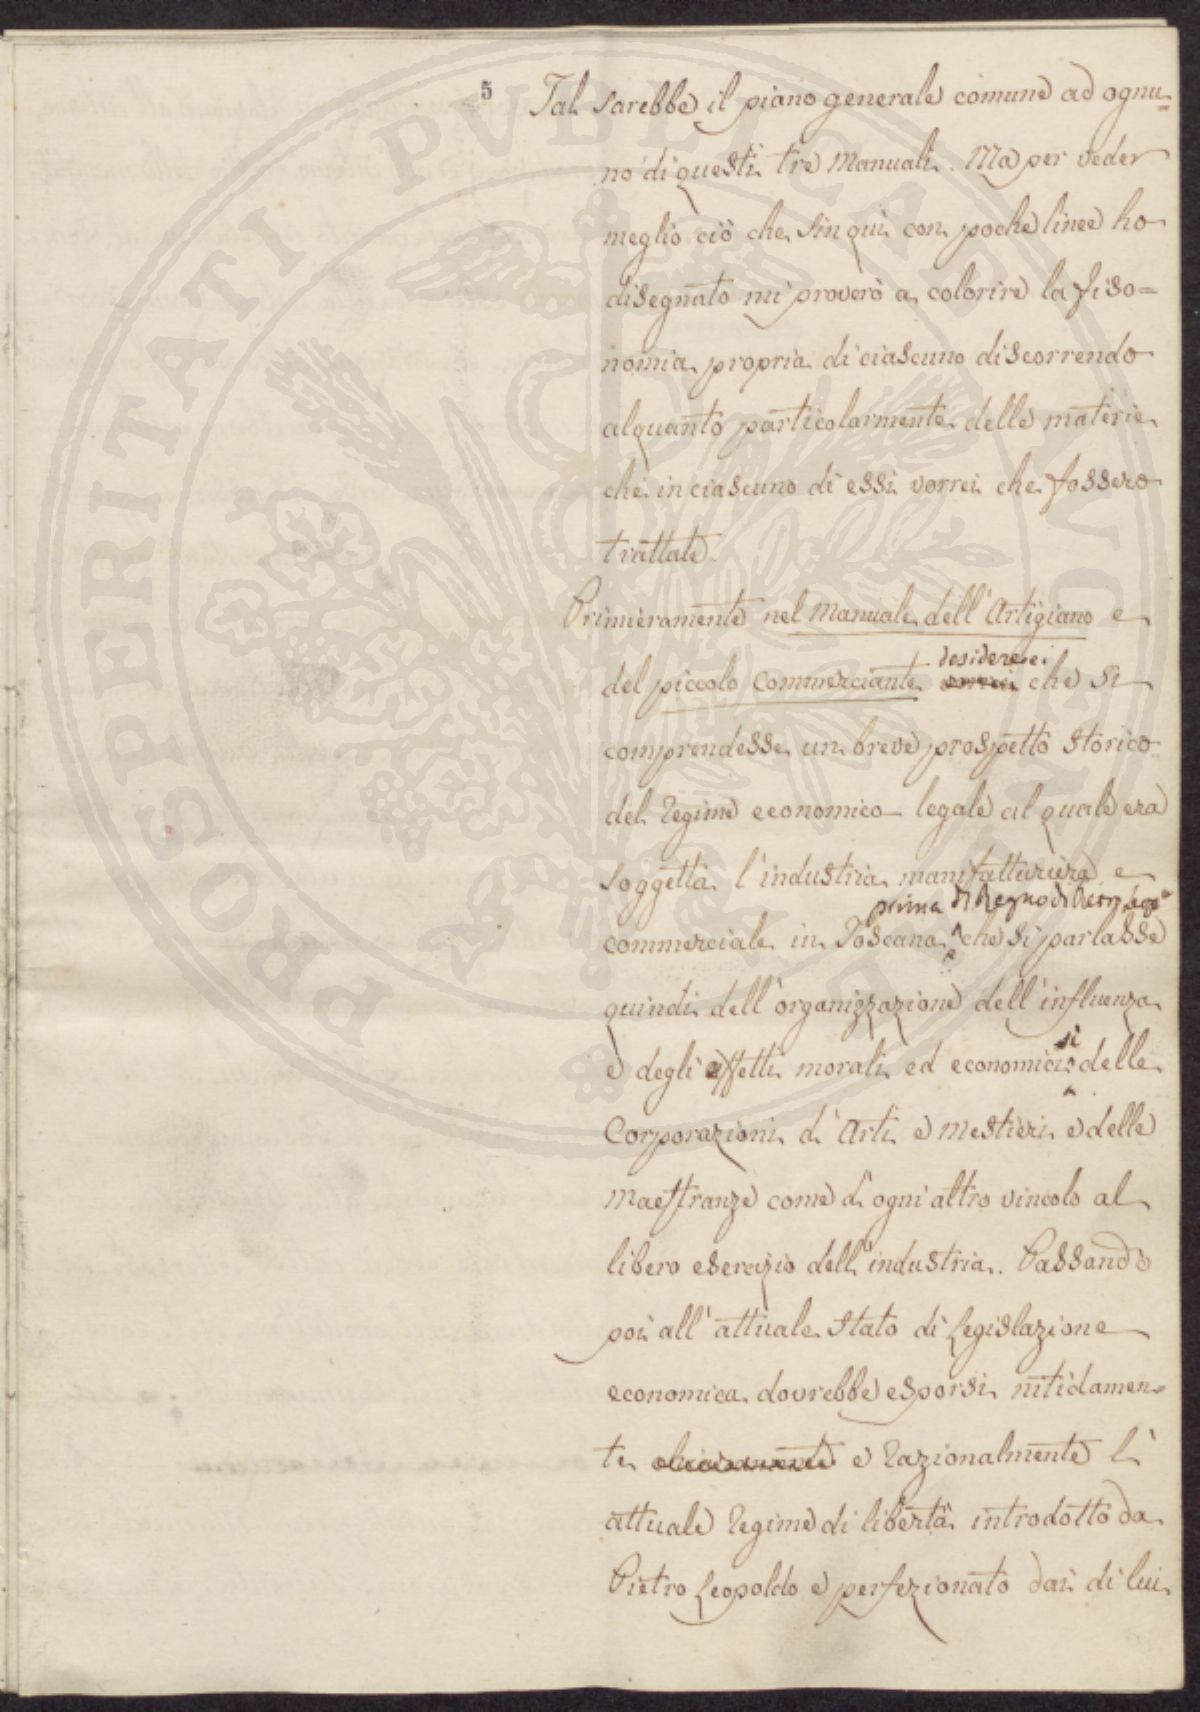 PROSPERITATI PUBLICAE AUGENDAE
5
Tal sarebbe il piano generale comune ad ognu=
no di questi tre Manuali. Ma per veder
meglio ciò che sin quì con poche linee ho
disegnato mi proverò a colorire la fiso=
nomia propria di ciascuno discorrendo
alquanto particolarmente delle materie
che in ciascuno di essi vorrei che fossero
trattate.
Primieramente nel Manuale dell'Artigiano e
desidererei
del piccolo Commerciante vorrei che si
comprendesse un breve prospetto storico
del Regime economico-legale al quale era
soggetta l'industria manifatturiera e
prima del Regno di Pietro Leop.º
commerciale in Toscana, che si parlasse
quindi dell'organizzazione dell'influenza
e degli effetti morali ed economici sì delle
Corporazioni di Arti e Mestieri e delle
Maestranze come di ogni altro vincolo al
libero esercizio dell'industria. Passando
poi all'attuale stato di Legislazione
economica dovrebbe esporsi nitidamen-
te chiaramente e Razionalmente l'
attuale Regime di libertà introdotto da
Pietro Leopoldo e perfezionato dai di lui